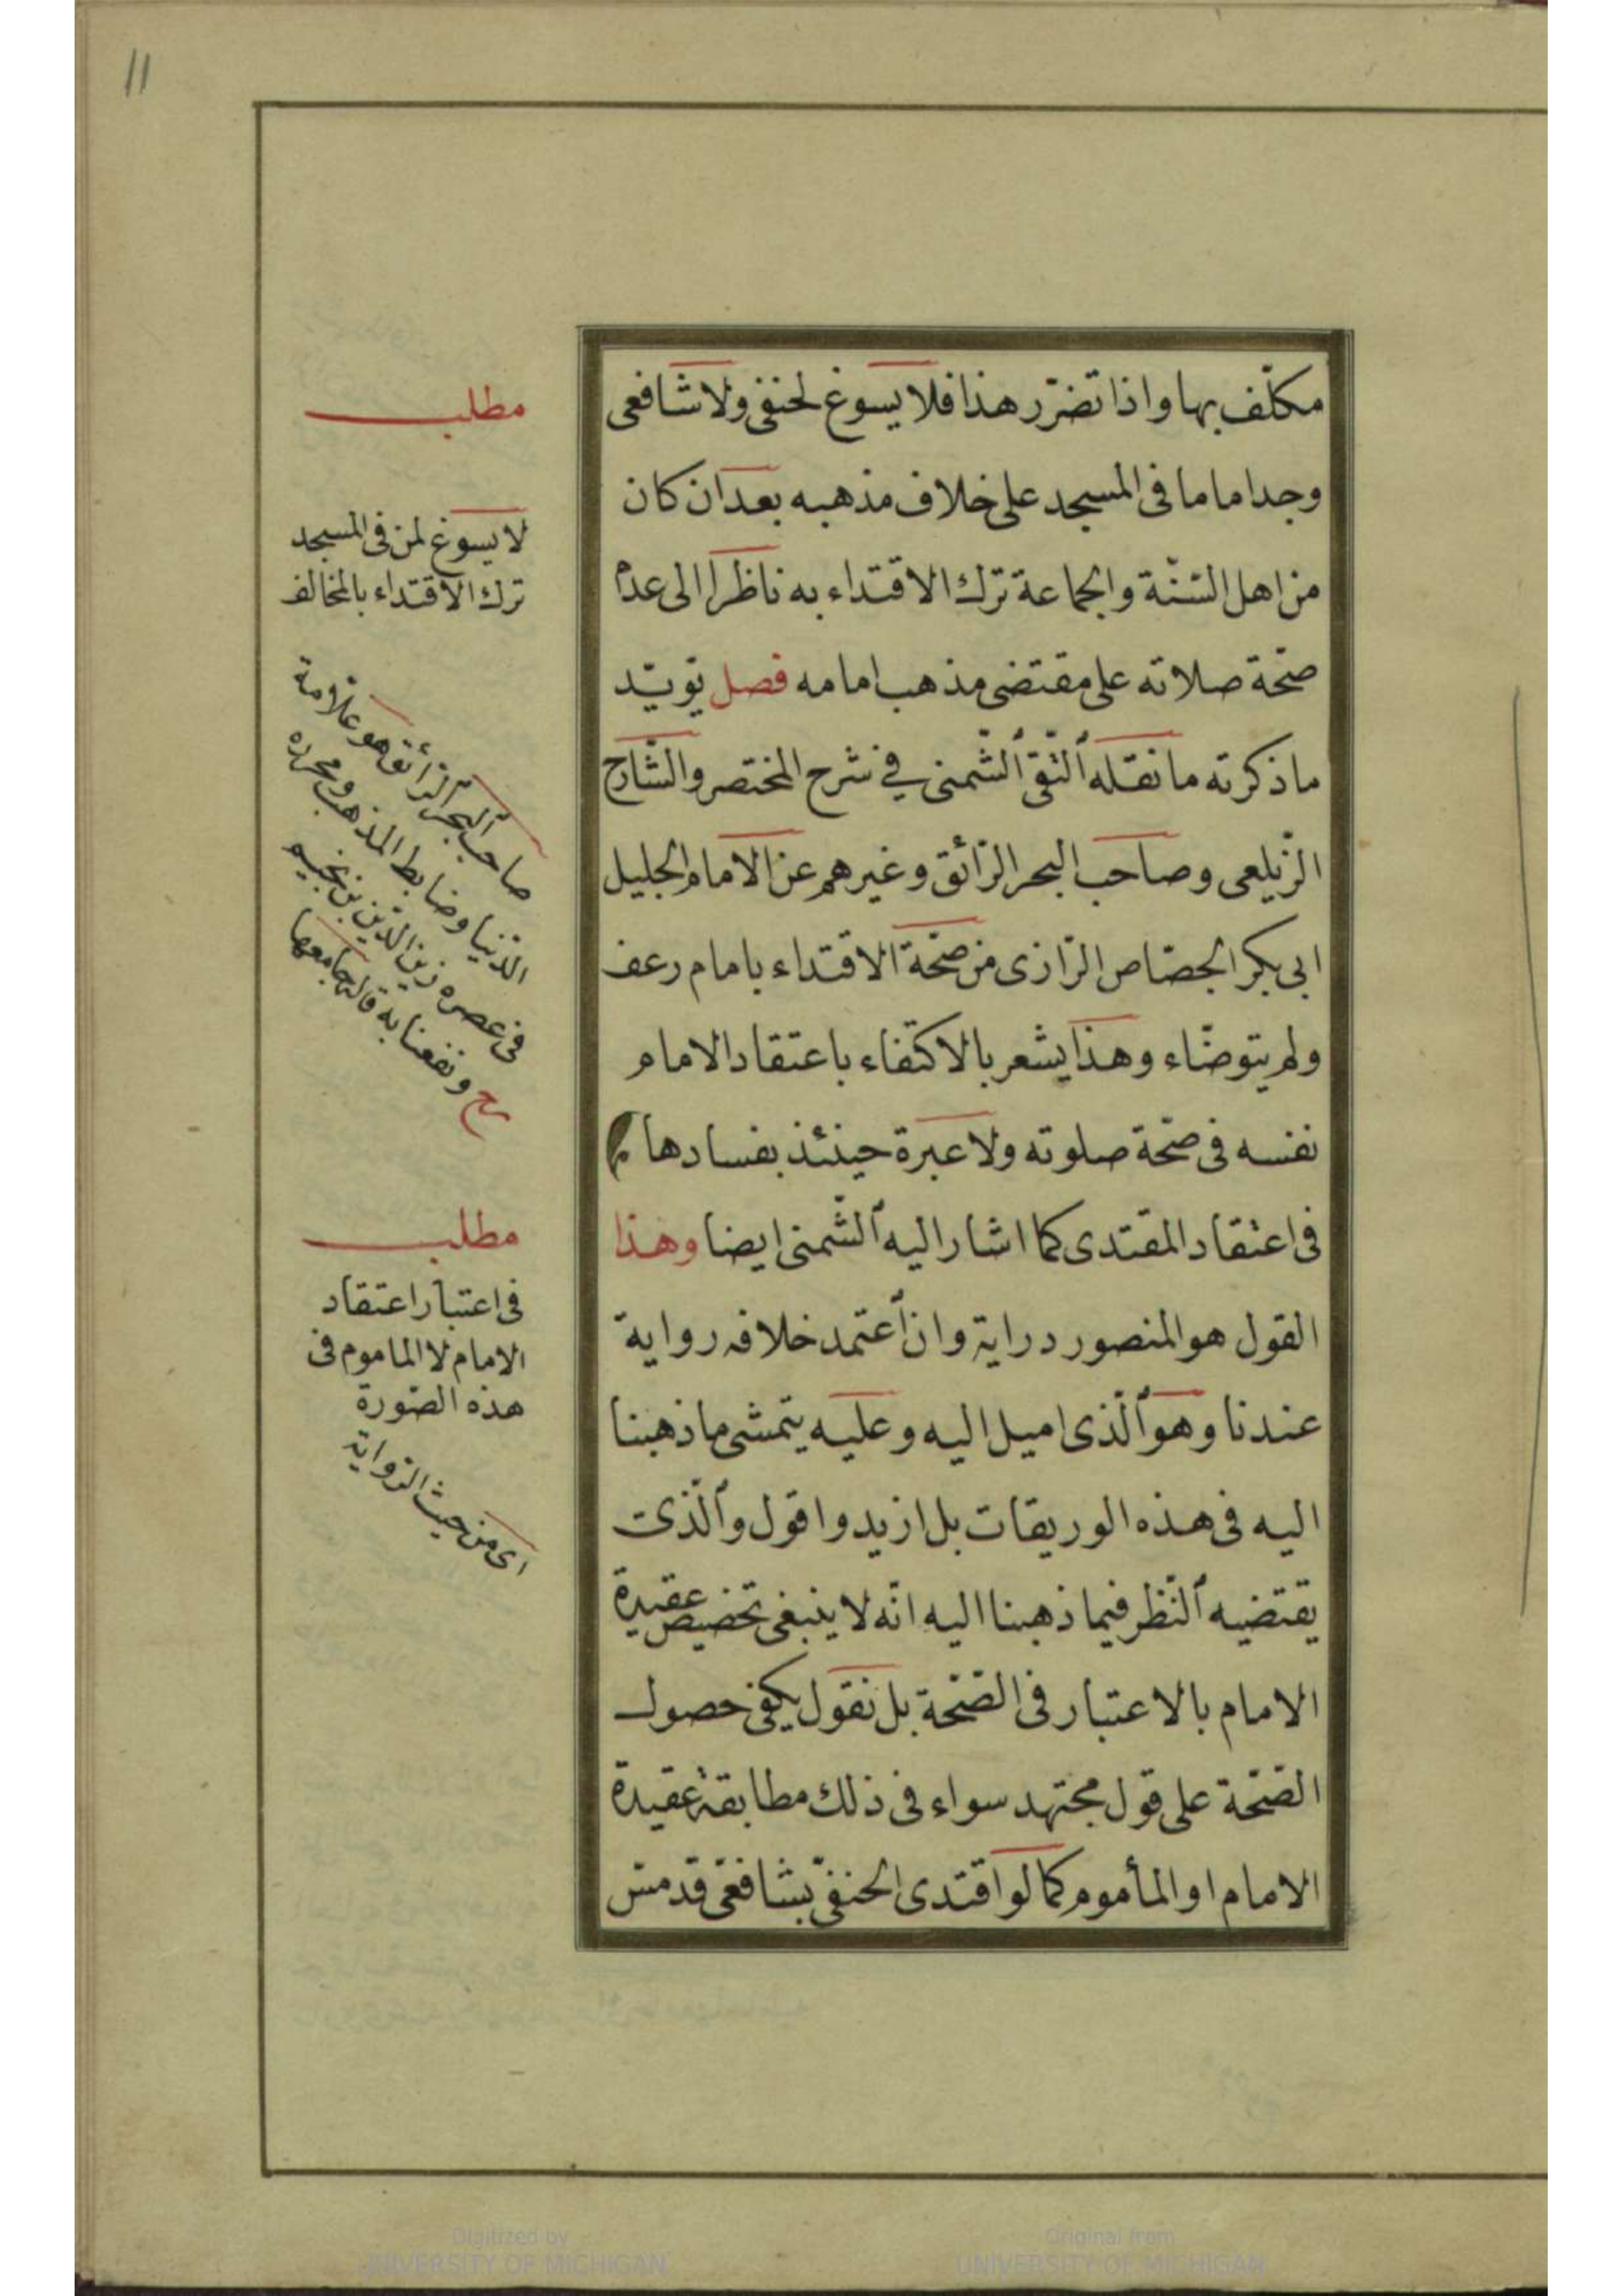 11
مكلّف بها واذا تضرّر هذا فلا يسوغ لحنفى ولا شافعى
وجد اماما فى المسجد على خلاف مذهبه بعد ان كان
من اهل السّنّة والجماعة ترك الاقتداء به ناظرا الى عدم
صحّة صلاته على مقتضى مذهب امامه فصل يويّد
ما ذكرته ما نقله التّقى الشّمنى في شرح المختصر والشّارح
الزّيلعى وصاحب البحر الرّائق وغيرهم عن الامام الجليل
ابى بكر الجصّاص الرّازى من صحّة الاقتداء بامام رعف
ولم يتوضّاء وهذا يشعر بالاكتفاء باعتقاد الامام
نفسه فى صحّة صلوته ولا عبرة حينئذ بفسادها
فى اعتقاد المقتدى كما اشار اليه الشّمنى ايضا وهذا
القول هو المنصور دراية وان اعتمد خلافه رواية
عندنا وهو الّذى اميل اليه وعليه يتمشى ما ذهبنا
اليه فى هذه الوريقات بل ازيد واقول والّذى
يقتضيه النّظر فيما ذهبنا اليه انّه لا ينبغى تخصيص عقيدة
الامام بالاعتبار فى الصّحّة بل نقول يكفى حصول
الصّحّة على قول مجتهد سواء فى ذلك مطابقة عقيدة
الامام او المأموم كما لو اقتدى الحنفىّ بشافعىّ قد مسّ
مطلب
لا يسوغ لمن فى المسجد
ترك الاقتداء بالمخالف
صاحب البحر الرّائق هو علّامة
الدّنيا وضابط المذهب ومحرره
فى عصره زين الدّين بن نجيم
رح ونفعنا به قاله جامعها
مطلب
فى اعتبار اعتقاد
الامام لا الماموم فى
هذه الصّورة
اى من حيث الرّواية
Digitized by
UNIVERSITY OF MICHIGAN
Original from
UNIVERSITY OF MICHIGAN